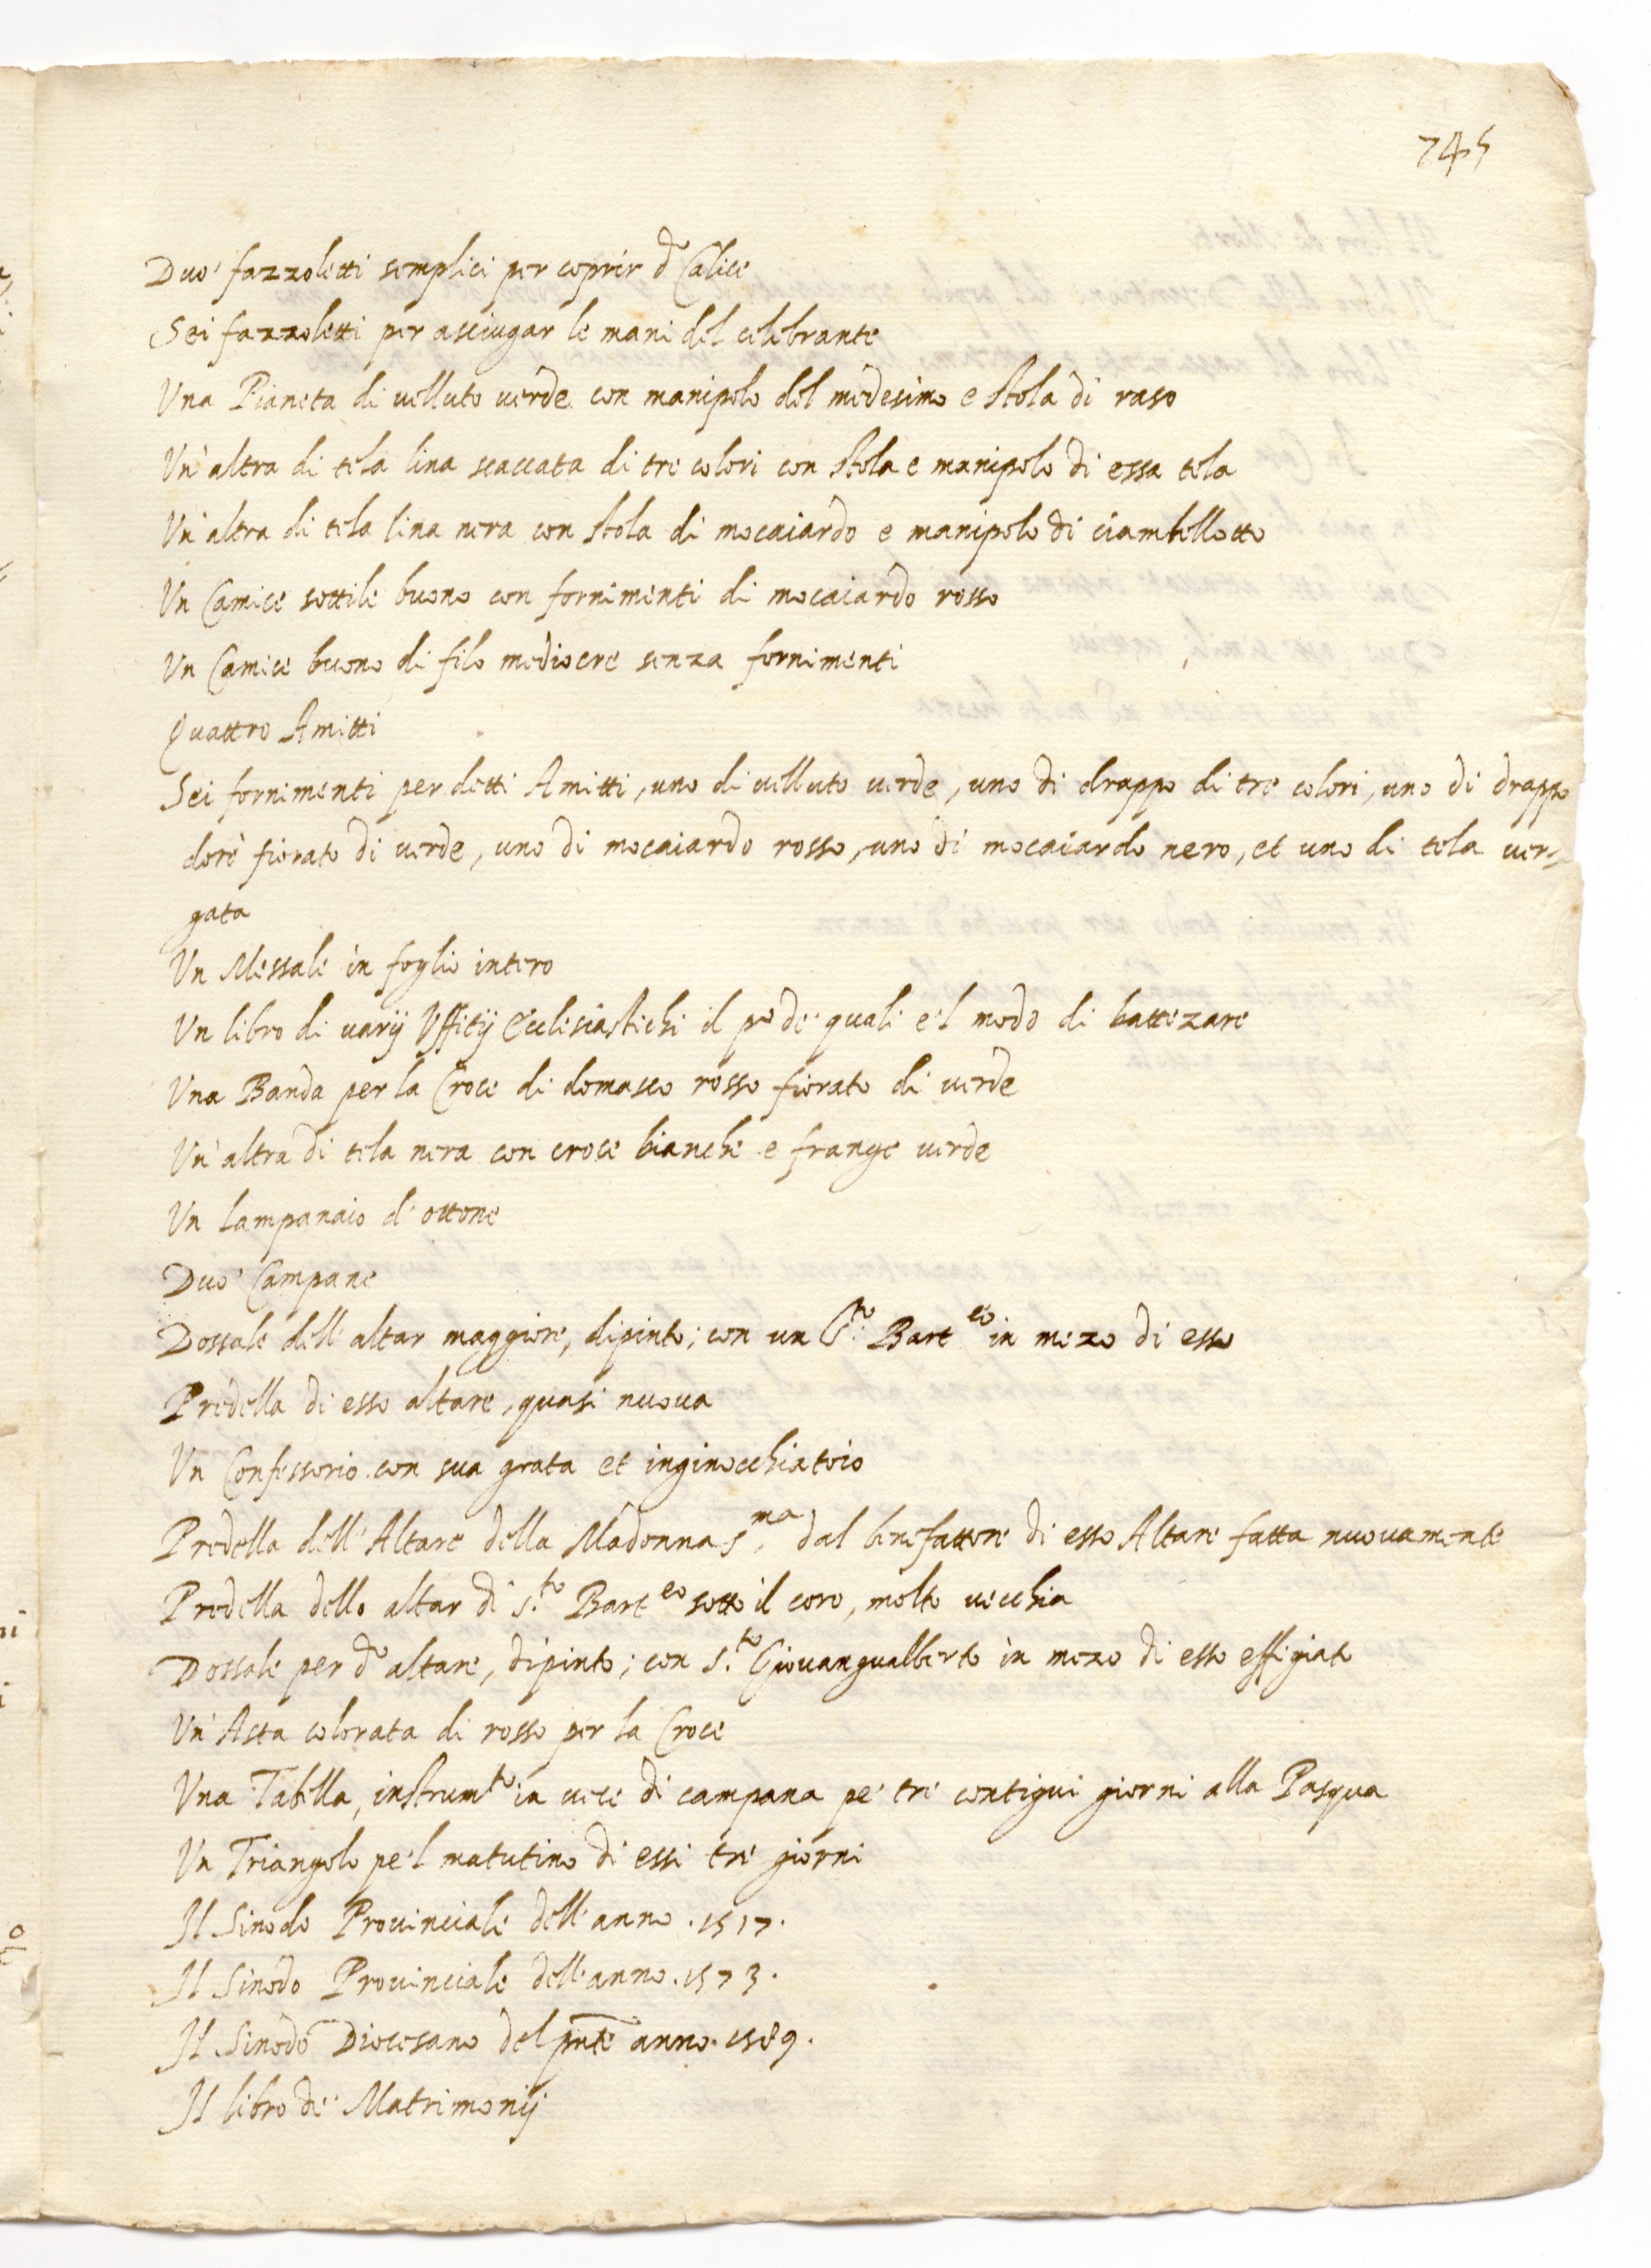 745
Duo' fazzoletti semplici per coprir d.o Calice
Sei fazzoletti per asciugar le mani del celebrante
Una Pianeta di velluto verde con manipolo del medesimo e stola di raso
Un'altra di tela lina scaccata di tre colori con stola e manipolo di essa tela
Un'altra di tela lina nera con stola di mocaiardo e manipolo di ciambellotto
Un Camice sottile buono con fornimenti di mocaiardo rosso
Un Camice buono di filo mediocre senza fornimenti
Quattro Amitti
Sei fornimenti per detti Amitti, uno di velluto verde, uno di drappo di tre colori, uno di drappo
dorè fiorato di verde, uno di mocaiardo rosso, uno di mocaiardo nero, et uno di tela ver-
gata
Un Messale in foglio intero
Un libro di varij Ufficij Ecclesiastichi il p.o de' quali e'l modo di battezare
Una Banda per la Croce di domasco rosso fiorato di verde
Un'altra di tela nera con croce bianche e frange verde
Un lampanaio d'ottone
Duo' Campane
Dossale dell'altar maggiore, dipinto; con un S.to Bart.eo in mezo di esso
Predella di esso altare, quasi nuova
Un Confessorio con sua grata et inginocchiatoio
Predella dell'Altare della Madonna S.ma, dal benefattore di esso Altare fatta nuovamente
Predella dello altar di S.to Bart.eo sotto il coro, molto vecchia
Dossale per d.o altare, dipinto; con S.to Giovangualberto in mezo di esso effigiato
Un'Asta colorata di rosso per la Croce
Una Tabella, instrum.to in vece di campana pe' tre contigui giorni alla Pasqua
Un Triangolo pe'l matutino di essi tre giorni
Il Sinodo Provinciale dell'anno .1517.
Il Sinodo Provinciale dell'anno .1573.
Il Sinodo Diocesano del pnte anno. 1589.
Il libro de' Matrimonij